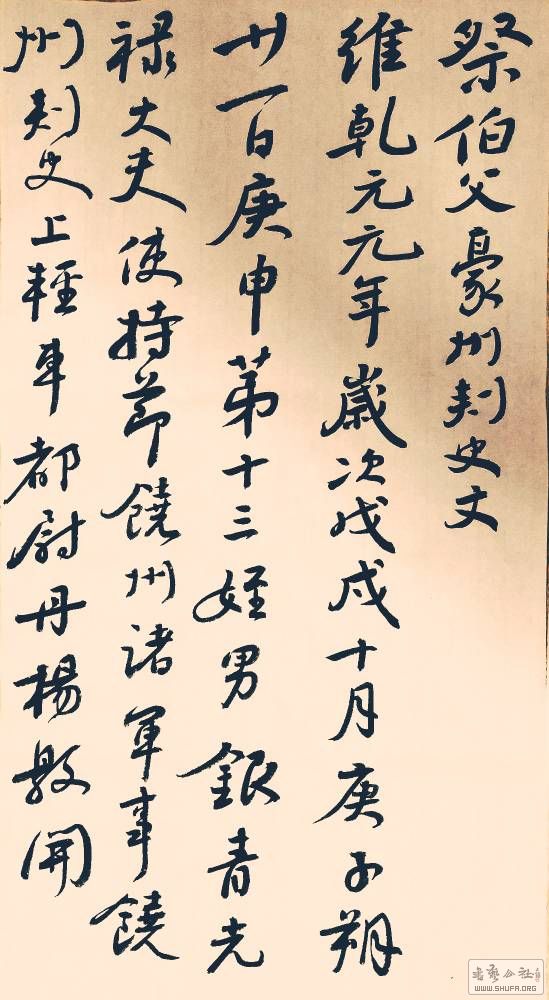 祭伯父豪州刺史文
維乾元元年歲次戊戌十月庚子朔
廿一日庚申苐十三姪男銀青光
禄大夫使持節饒州諸軍事饒
州刺史上輕車都尉丹楊縣開
書藝公社
WWW.SHUFA.ORG